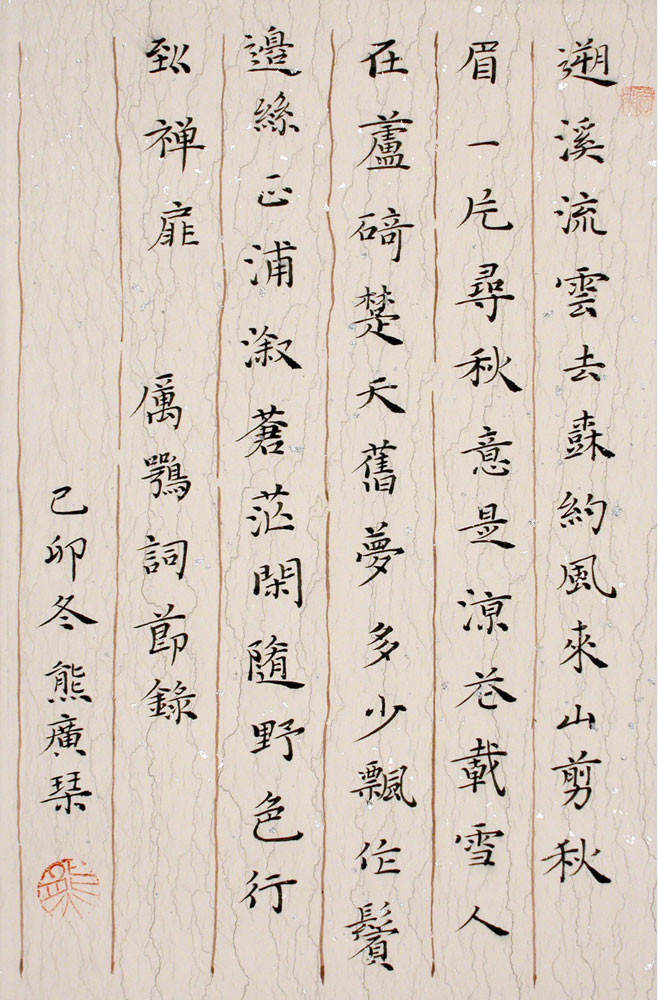 遡溪流雲去樹約風來山剪秋
眉一片尋秋意是涼花載雪人
在蘆碕楚天舊夢多少飄作鬢
邊絲正浦漵蒼茫閑隨野色行
到禅扉 厲鶚詞節錄
己卯冬熊廣琴